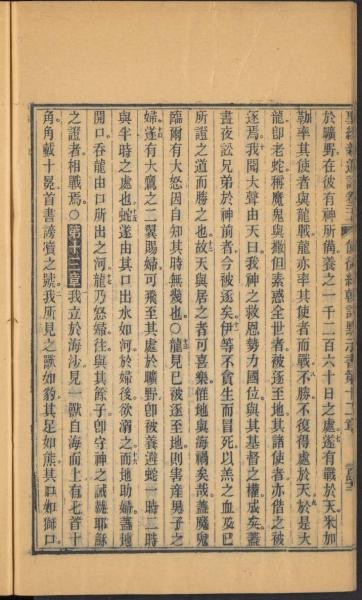 於曠野在彼有神所備養之一千二百六十日之處遂有戰於天米加
勒率其使者與龍戰龍亦率其使者而戰不勝不復得處於天於是大
龍卽老蛇稱魔鬼與撒但素惑全世者被逐至地其諸使者亦偕之被
逐焉我聞大聲由天曰我神之救恩勢力國位與其基督之權咸矣蓋
晝夜訟兄弟於神前者今被逐矣伊等不貪生而冒死以羔之血及己
所證之道而勝之也故天與居之者可喜樂惟地與海禍矣哉蓋魔鬼
臨爾有大怒因自知其時無幾也○龍見己被逐至地則害產男子之
婦遂有大鷹之二翼賜婦可飛至其處於曠野卽被養避蛇一時二時
與半時之處也蛇遂由其口出水如河於婦後欲溺之而地助婦蓋地
開口吞龍由口所出之河龍乃怒婦往與其餘子卽守神之誡 耶穌
之證者相戰焉○第十三章我立於海沙見一獸自海而上有七首十
角角載十冕首書謗瀆之號我所見之獸如豹其足如熊其口如獅口